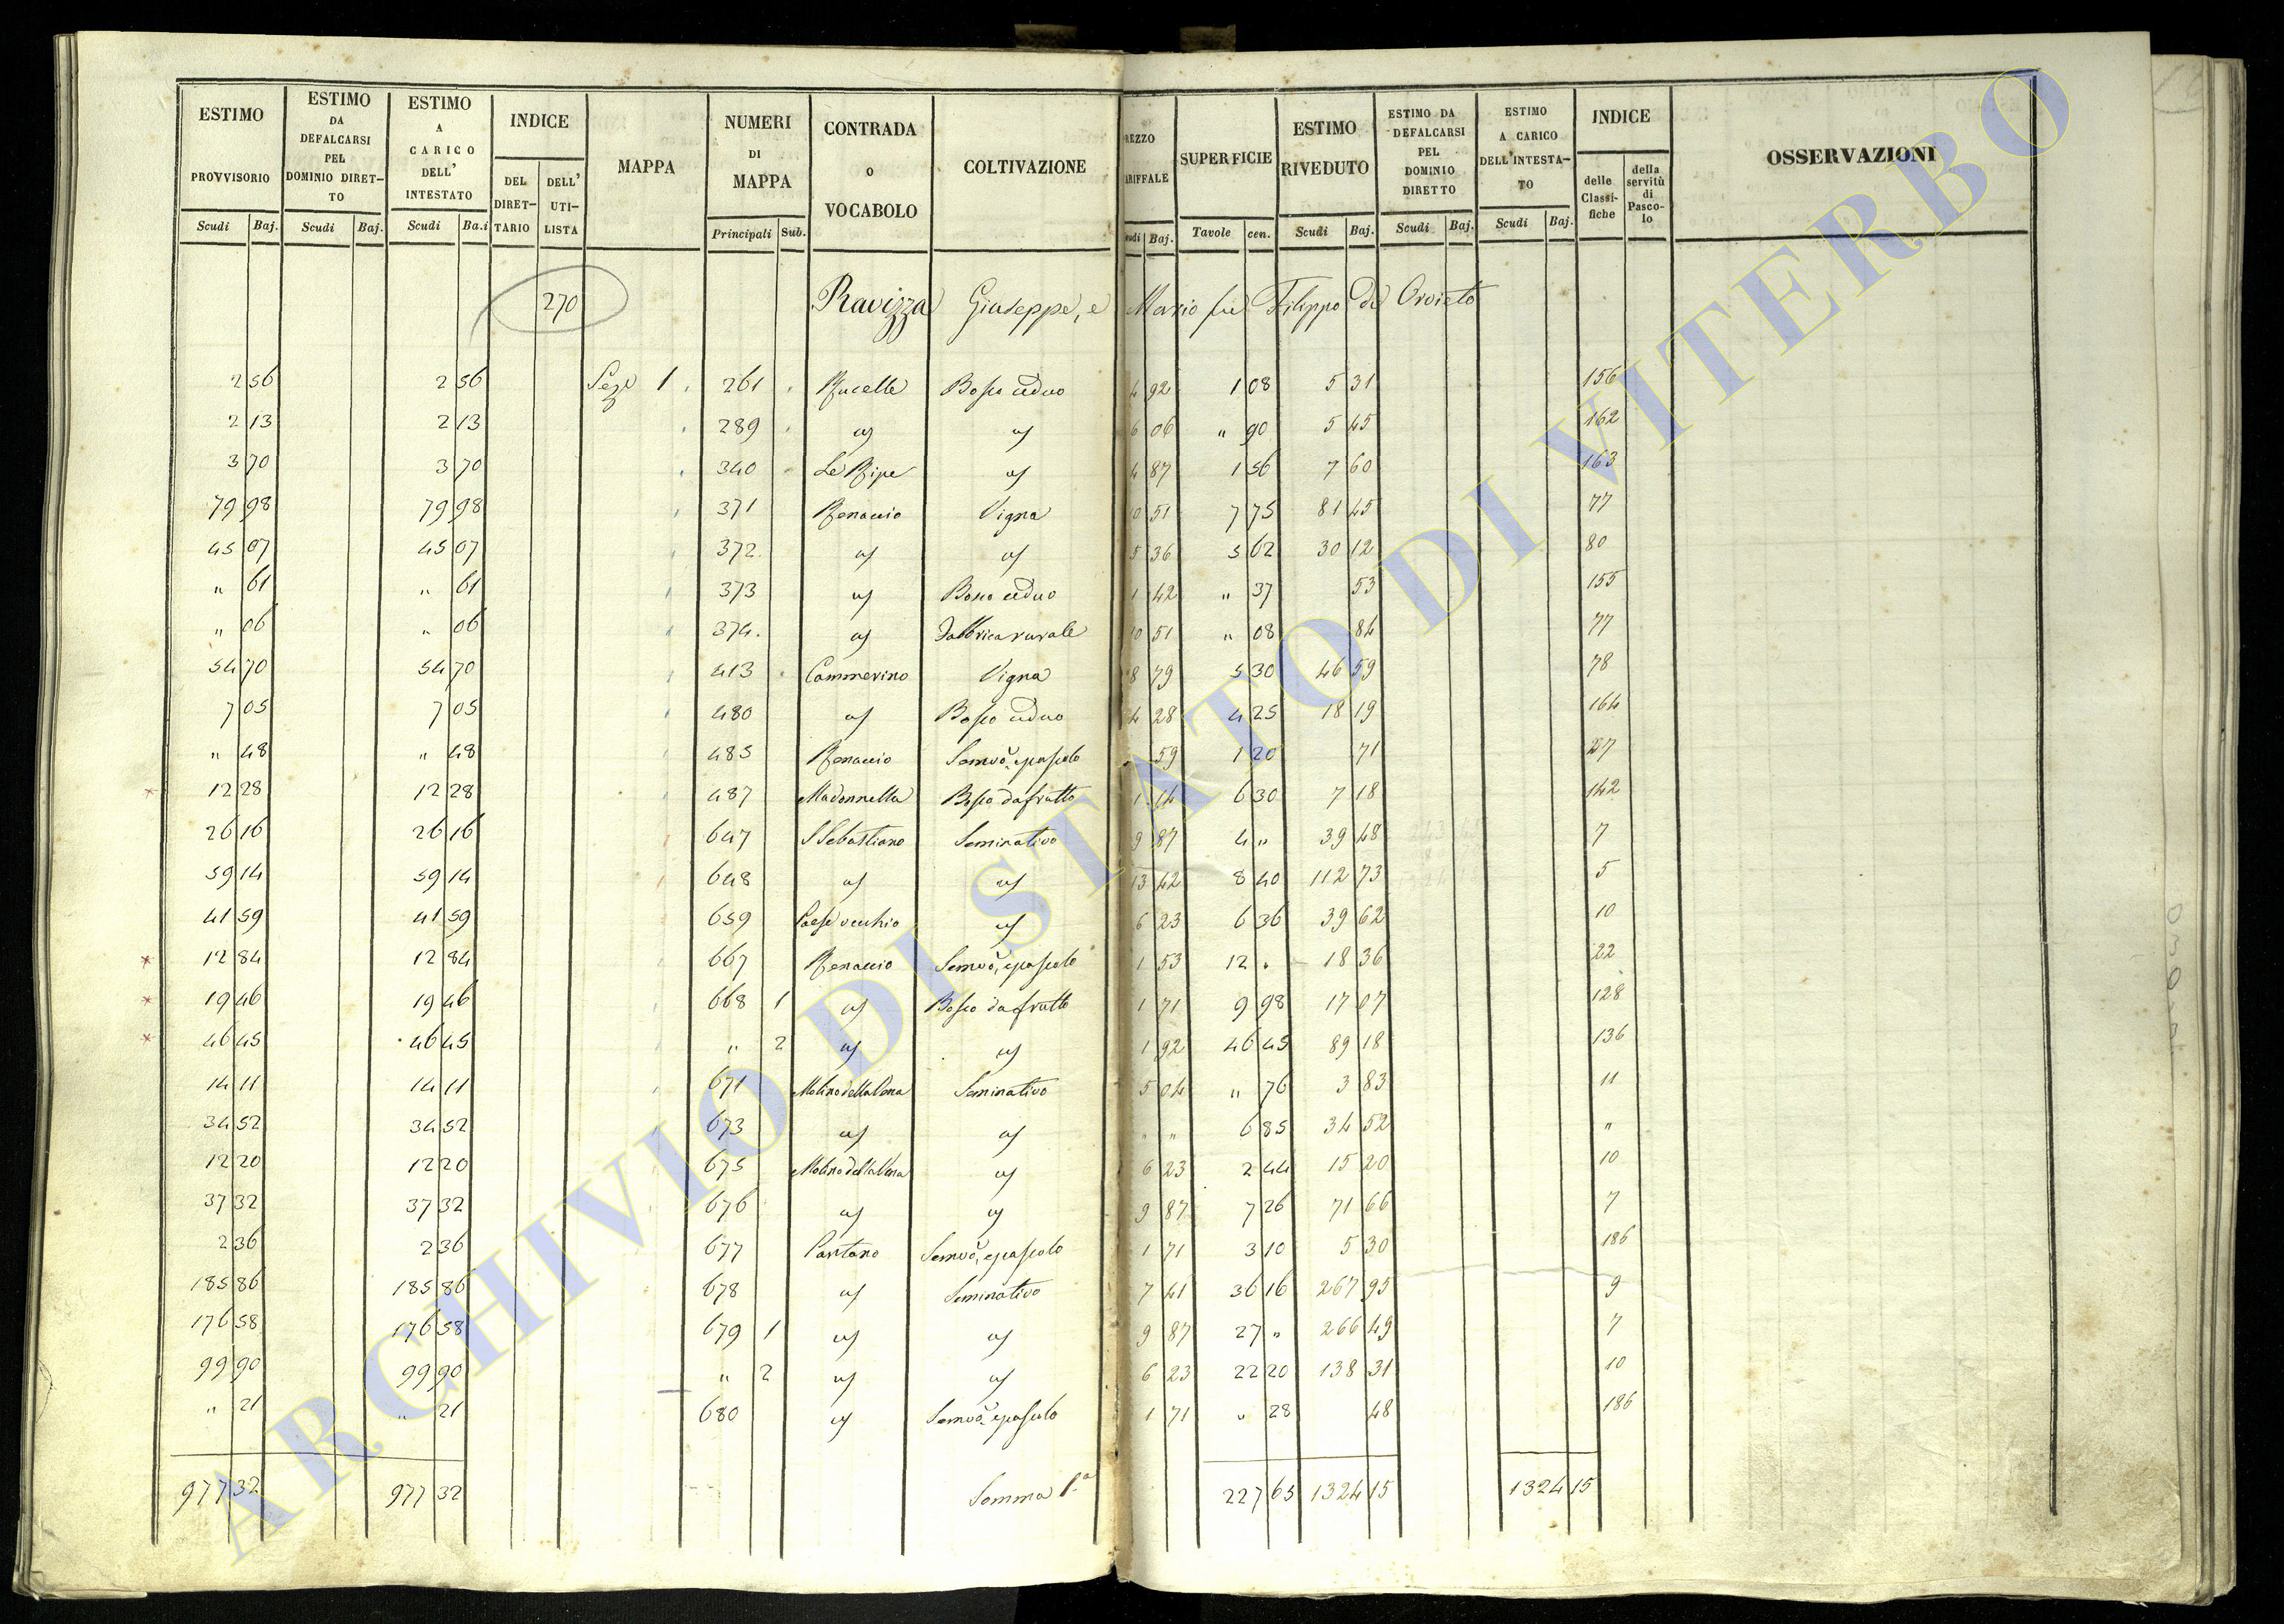 ESTIMO PROVVISORIO Scudi Baj. | ESTIMO DA DEFALCARSI PEL DOMINIO DIRET-TO Scudi Baj. | ESTIMO A CARICO DELL' INTESTATO Scudi Ba.i | INDICE DEL DIRET-TARIO DELL' UTI-LISTA | MAPPA | NUMERI DI MAPPA Principali Sub. | CONTRADA o VOCABOLO | COLTIVAZIONE | REZZO ARIFFALE udi Baj. | SUPERFICIE Tavole cen. | ESTIMO RIVEDUTO Scudi Baj. | ESTIMO DA DEFALCARSI PEL DOMINIO DIRETTO Scudi Baj. | ESTIMO A CARICO DELL'INTESTA-TO Scudi Baj. | INDICE delle Classi-fiche della servitù di Pasco-lo | OSSERVAZIONI
270 Ravizza Giuseppe, e Mario fu Filippo di Orvieto
2 56 2 56 Sez. 1 261 Rucelle Bosco ceduo 4 92 1 08 5 31 156
2 13 2 13 289 id id 6 06 " 90 5 45 162
3 70 3 70 340 Le Ripe id 4 87 1 56 7 60 163
79 98 79 98 371 Renaccio Vigna 0 51 7 75 81 45 77
45 07 45 07 372 id id 5 36 5 62 30 12 80
" 61 " 61 373 id Bosco ceduo 1 42 " 37 53 155
" 06 " 06 374. id Fabbrica rurale 0 51 " 08 84 77
54 70 54 70 413 Cammerino Vigna 8 79 5 30 46 59 78
7 05 7 05 480 id Bosco ceduo 4 28 4 25 18 19 164
" 48 " 48 485 Renaccio Semvo. e pascolo 59 1 20 71 27
12 28 12 28 487 Madonnella Bosco da frutto 1 14 6 30 7 18 142
26 16 26 16 647 S Sebastiano Seminativo 9 87 4 " 39 48 7
59 14 59 14 648 id id 13 42 8 40 112 73 5
41 59 41 59 659 Paese vecchio id 6 23 6 36 39 62 10
12 84 12 84 667 Renaccio Semvo, e pascolo 1 53 12 " 18 36 22
19 46 19 46 668 1 id Bosco da frutto 1 71 9 98 17 07 128
46 45 46 45 " 2 id id 1 92 46 45 89 18 136
14 11 14 11 671 Molino della Vena Seminativo 5 04 " 76 3 83 11
34 52 34 52 673 id id " " 6 85 34 52 "
12 20 12 20 675 Molino della Vena id 6 23 2 44 15 20 10
37 32 37 32 676 id id 9 87 7 26 71 66 7
2 36 2 36 677 Pantano Semvo, e pascolo 1 71 3 10 5 30 186
185 86 185 86 678 id Seminativo 7 41 36 16 267 95 9
176 58 176 58 679 1 id id 9 87 27 " 266 49 7
99 90 99 90 " 2 id id 6 23 22 20 138 31 10
" 21 " 21 680 id Semvo. e pascolo 1 71 " 28 48 186
977 32 977 32 Somma 1.a 227 65 1324 15 1324 15
ARCHIVIO DI STATO DI VITERBO